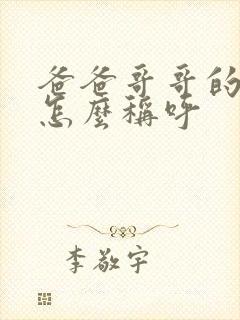 爸爸哥哥的
怎麼稱呼
李敬宇